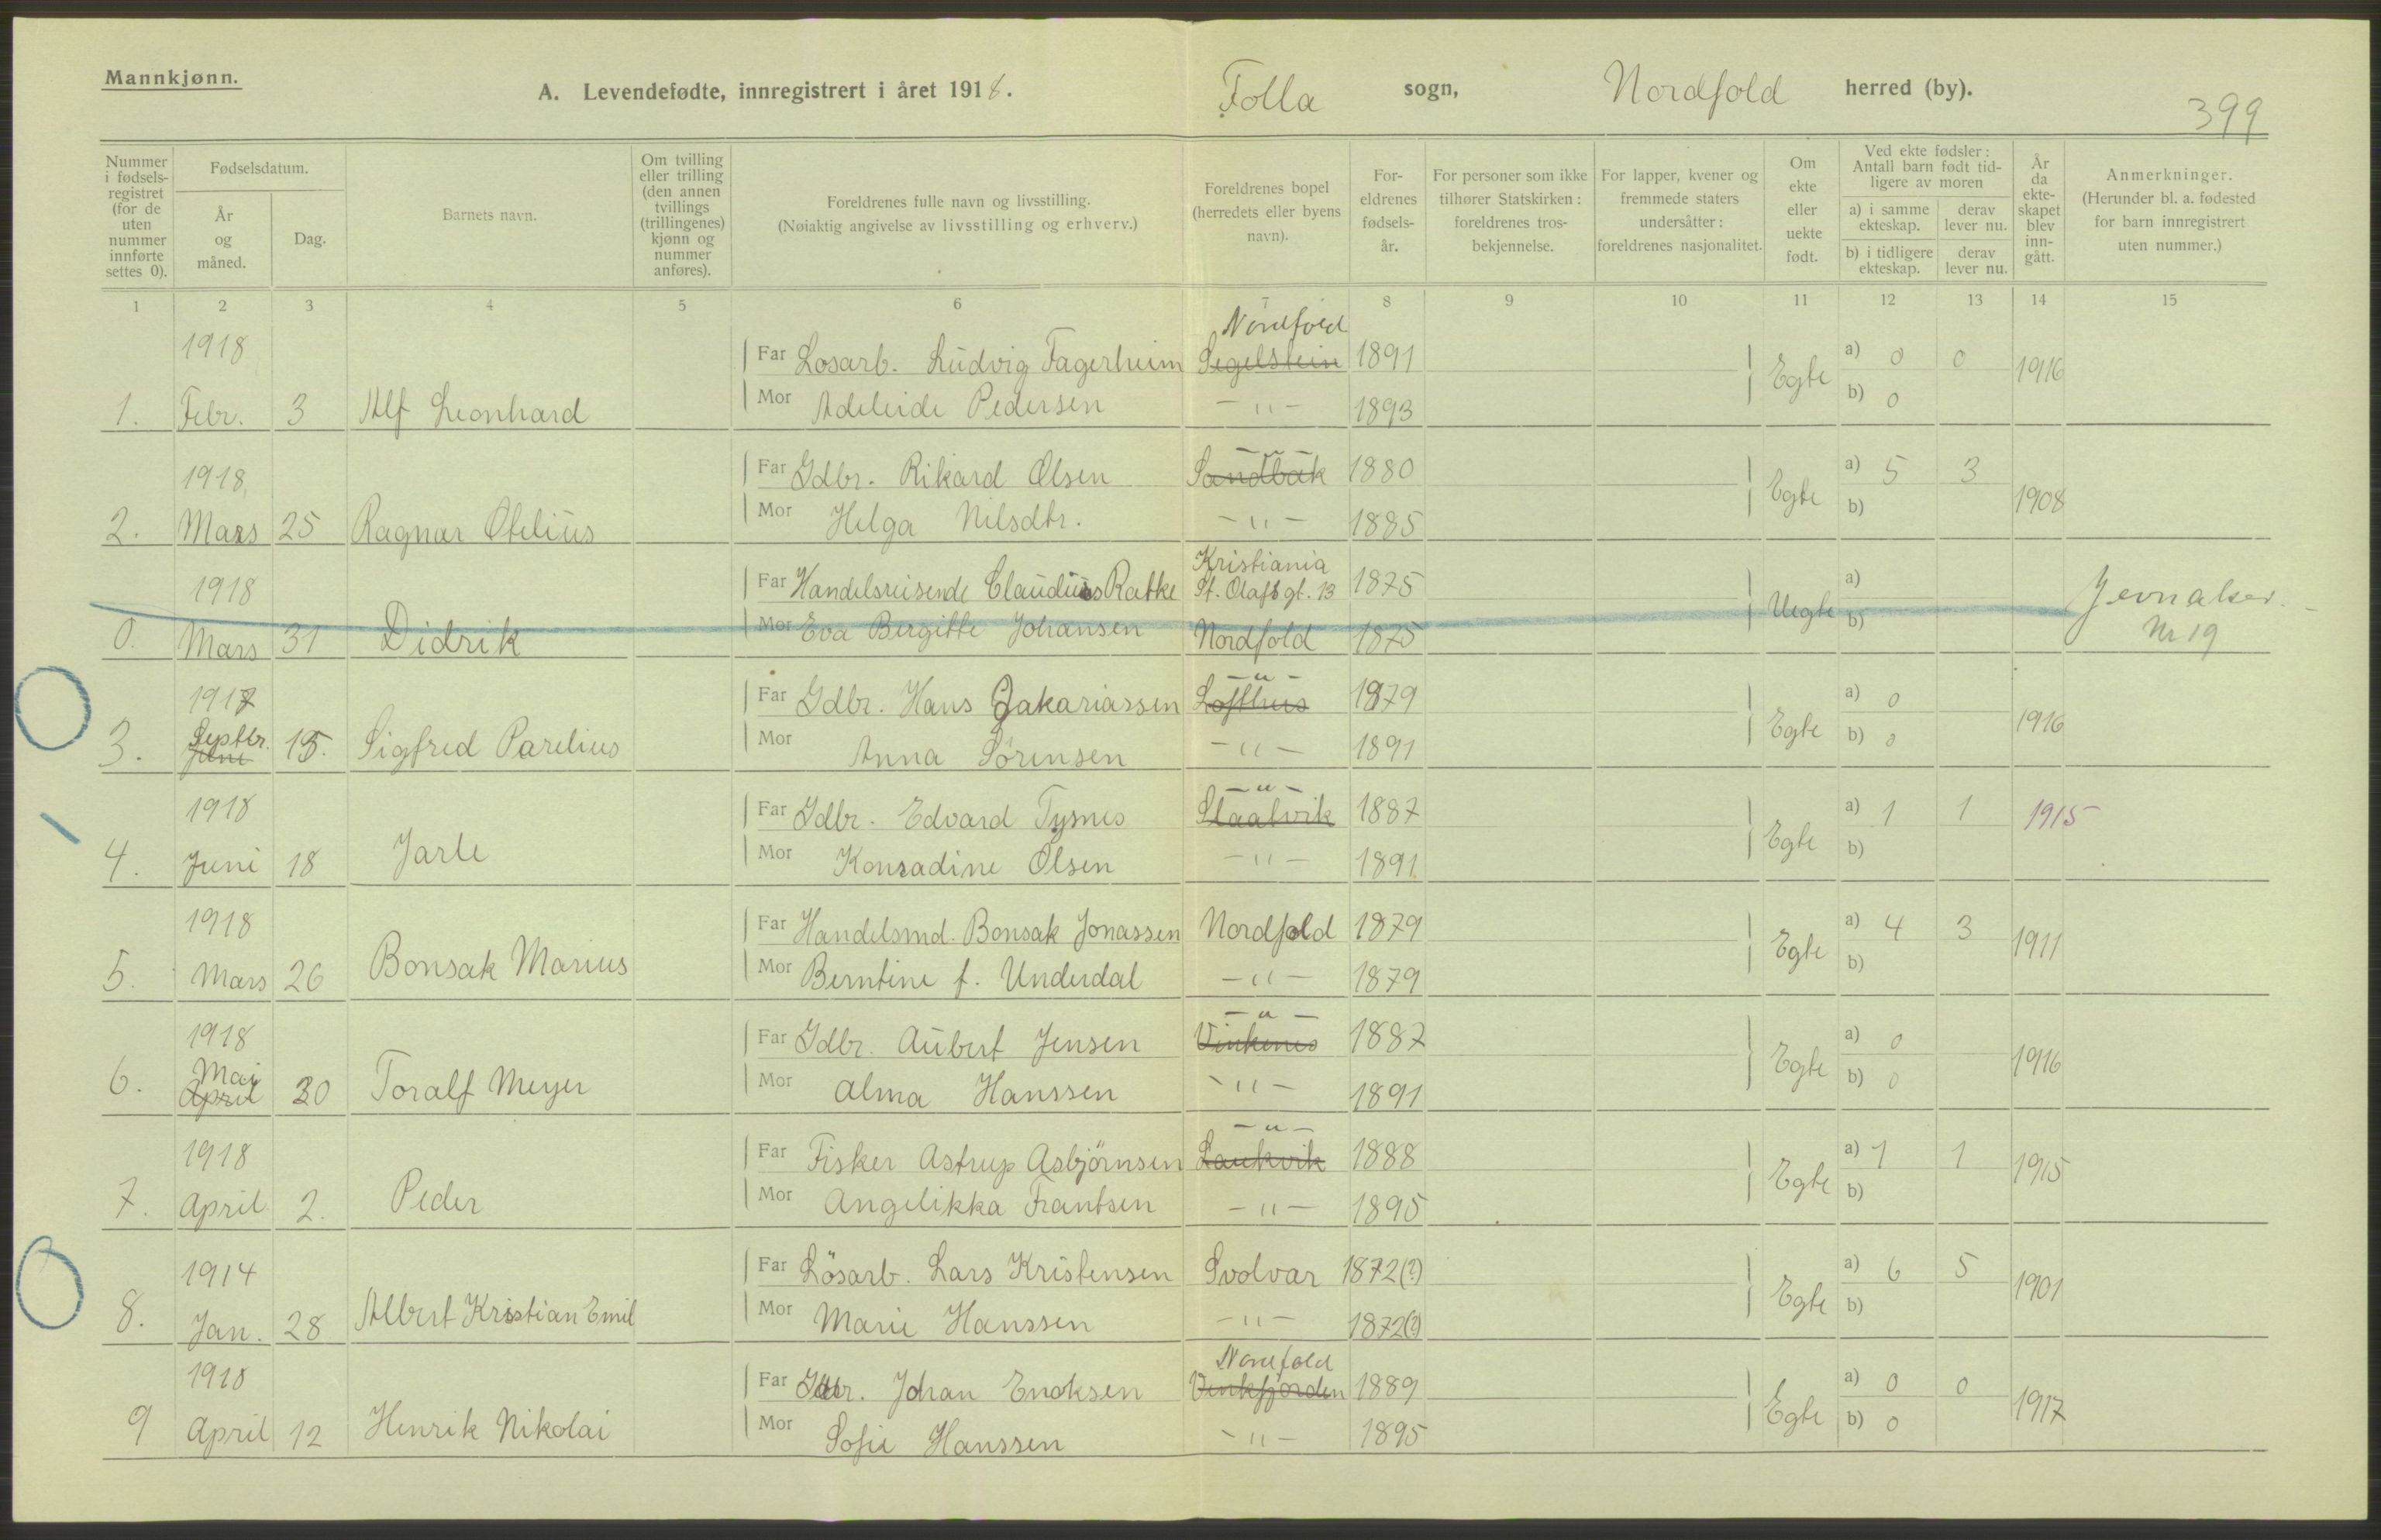 Mannkjønn.
A. Levendefødte, innregistrert i året 1918.
Folla sogn,
Nordfold herred (by).
399
Nummer i fødsels-registret (for de uten nummer innførte settes 0).
Fødselsdatum.
År og måned.
Dag.
Barnets navn.
Om tvilling eller trilling (den annen tvillings (trillingenes) kjønn og nummer anføres).
Foreldrenes fulle navn og livsstilling.
(Nøiaktig angivelse av livsstilling og erhverv.)
Foreldrenes bopel (herredets eller byens navn).
For-eldrenes fødsels-år.
For personer som ikke tilhører Statskirken: foreldrenes tros-bekjennelse.
For lapper, kvener og fremmede staters undersåtter: foreldrenes nasjonalitet.
Om ekte eller uekte født.
Ved ekte fødsler: Antall barn født tid-ligere av moren
a) i samme ekteskap.
derav lever nu.
b) i tidligere ekteskap.
derav lever nu.
År da ekte-skapet blev inn-gått.
Anmerkninger.
(Herunder bl. a. fødested for barn innregistrert uten nummer.)
1 2 3 4 5 6 7 8 9 10 11 12 13 14 15
Nordfold
1918 Far Losarb. Ludvig Fagerheim Segelstein 1891 Egte a) 0 0 1916
1. Febr. 3 Alf Leonhard Mor Adeleide Pedersen -"- 1893 b) 0
-"-
1918 Far Gdbr. Rikard Olsen Sandbak 1880 Egte a) 5 3 1908
2. Mars 25 Ragnar Otelius Mor Helga Nilsdtr. -"- 1885 b)
Kristiania
1918 Far Handelsreisende Claudius Ratke St. Olafs gt. 13 1875 Uegte a) Jevnaker.
0. Mars 31 Didrik Mor Eva Bergitte Johansen Nordfold 1875 b) Nr 19
-"-
1917 Far Gdbr. Hans Zakariassen Lofthus 1879 Egte a) 0 1916
Septbr.
3. Juni 15. Sigfred Parelius Mor Anna Sörensen -"- 1891 b) 0
-"-
1918 Far Gdbr. Edvard Tysnes Slaatvik 1887 Egte a) 1 1 1915
4. Juni 18 Jarle Mor Konradine Olsen -"- 1891 b)
1918 Far Handelsmd. Bonsak Jonassen Nordfold 1879 Egte a) 4 3 1911
5. Mars 26 Bonsak Marius Mor Berntine f. Underdal -"- 1879 b)
-"-
1918 Far Gdbr. Aubert Jensen Vinkenes 1887 Egte a) 0 1916
Mai
6. April 30 Toralf Meyer Mor Alma Hanssen -"- 1891 b) 0
-"-
1918 Far Fisker Astrup Asbjörnsen Laukvik 1888 Egte a) 1 1 1915
7. April 2. Peder Mor Angelikka Frantsen -"- 1895 b)
1914 Far Lösarb. Lars Kristensen Svolvar 1872(?) Egte a) 6 5 1901
8. Jan. 28 Albert Kristian Emil Mor Marie Hanssen -"- 1872(?) b)
Nordfold
1918 Far Gdbr. Johan Enoksen Vinkfjorden 1889 Egte a) 0 0 1917
9 April 12 Henrik Nikolai Mor Sofie Hanssen -"- 1895 b) 0